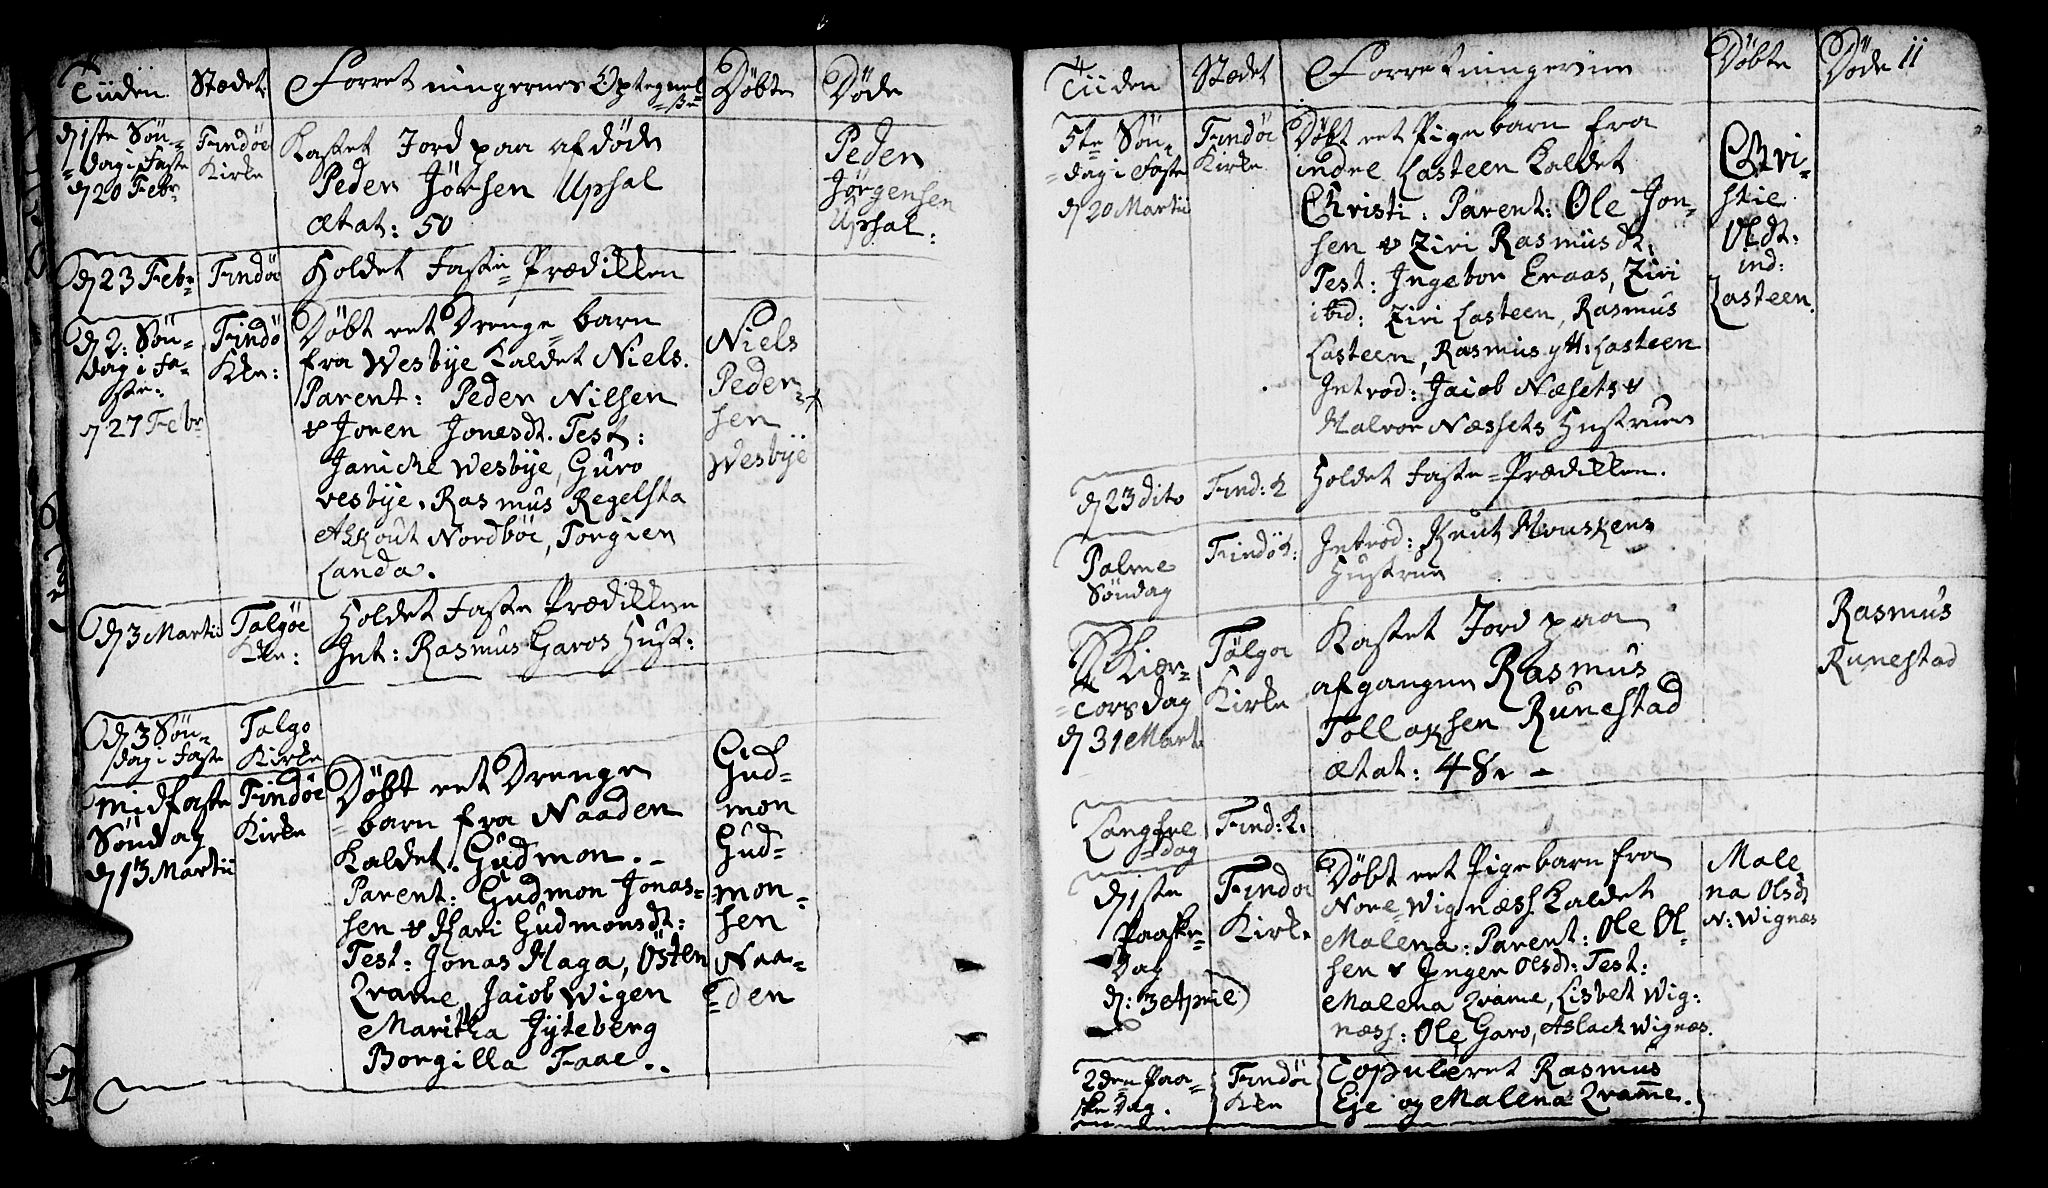 Tiiden Stædet Forretningernes Optegnel= Döbte Döde
=se
d 1ste Sön=
=dag i Faste
d 20 Febr:
Findöe
Kirke
Kastet Jord paa afdöde
Peder Jörsen Upsal
Ætat: 50
Peder
Jörgensen
Upsal:
d 23 Febr: Findöe Holdet Faste=Prædikken
d 2: Sön=
dag i Fa=
ste:
d 27 Febr
Findö
Kke:
Döbt eet Drenge=barn
fra Wesbye kaldet Niels.
Parent: Peder Nilsen
& Joren Jonesdt. Test:
Janicke Wesbye, Guro
vesbye, Rasmus Regelsta
Askout Nordböe, Torgien
Landa.
Niels
Peder=
sen
Wesbÿe
d 3 Martii Talgöe
Kke:
Holdet Faste Prædikken
Int: Rasmus Garos Hust:
d 3 Sön=
dag i Faste
Talgo
Kirke
Midfaste
Söndag
d 13 Martii
Findöe
Kirke
Döbt eet Drenge
=barn fra Naaden
kaldet. Gudmon.
Parent: Gudmon Jonas=
sen & Kari Gudmonsdt:
Test: Jonas Haga, Östen
Qvame, Jacob Wigen
Maritha Jÿteberg
Borgilla Faae..
Gud=
mon
Gud=
mon=
sen
Naa=
=den
Tiiden Stædet Forretningerne Döbte Döde 11
5te Sön=
=dag i Faste
d 20 Martii
Findöe
Kirke
Döbt eet Pigebarn fra
indre Lasteen kaldet
Christi: Parent: Ole Jon=
sen & Ziri Rasmusdt.
Test: Ingebor Eraas, Ziri
ibid: Ziri Lasteen, Rasmus
Lasteen, Rasmus ytt: Lasteen
Introd: Jacob Næsets &
Halvor Næssets Hustruer
Chri=
stie
Olsdt:
ind:
Lasteen.
d 23 dito Find: K Holdet Faste=Prædikken.
Palme
Söndag
Findök: Introd: Knut Houskens
Hustrue
Skiær=
=torsdag
d 31 Mart.
Tölgo
Kirke
Kastet Jord paa
afgangne Rasmus
Tollaksen Runestad
Ætat: 48. –
Rasmus
Runestad
Langfre
=dag
Find: K.
d 1ste
Paaske=
Dag
d: 3 Aprile
Findöe
Kirke
Döbt eet Pigebarn fra
Nore=Wignæss kaldet
Malena: Parent: Ole Ol=
sen & Inger Olsdt: Test:
Malena Qvame, Lisbet Wig=
næss: Ole Garo, Aslack Wignæs.
Male
na Olsdt
N: Wignæs
2den Paa=
ske Dag.
Findöe
Kke
Copuleret Rasmus
Eje og Malena Qvame.